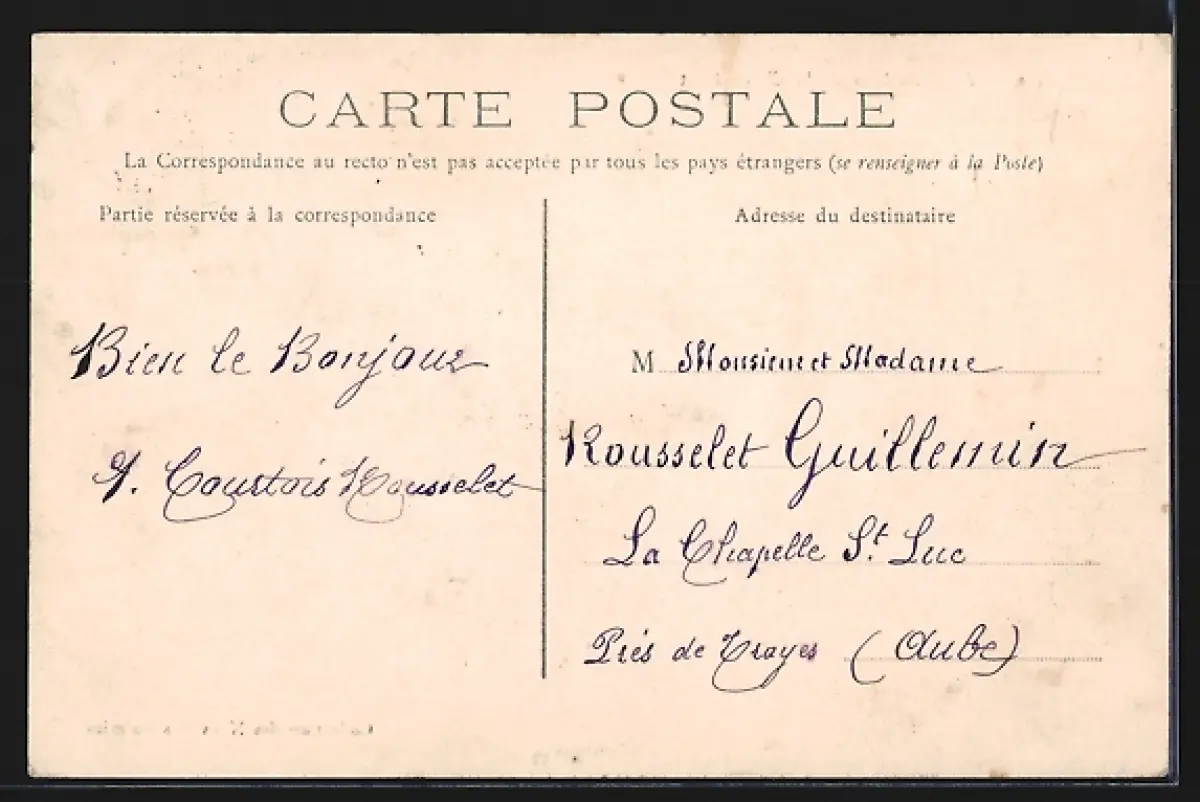 CARTE POSTALE
La Correspondance au recto n'est pas acceptée par tous les pays étrangers (se renseigner à la Poste)
Partie réservée à la correspondance
Adresse du destinataire
Bien le Bonjour
Courtois Rousselet
M Monsieur et Madame
Rousselet Guillemin
La Chapelle St. Luc
Près de Troyes (Aube)